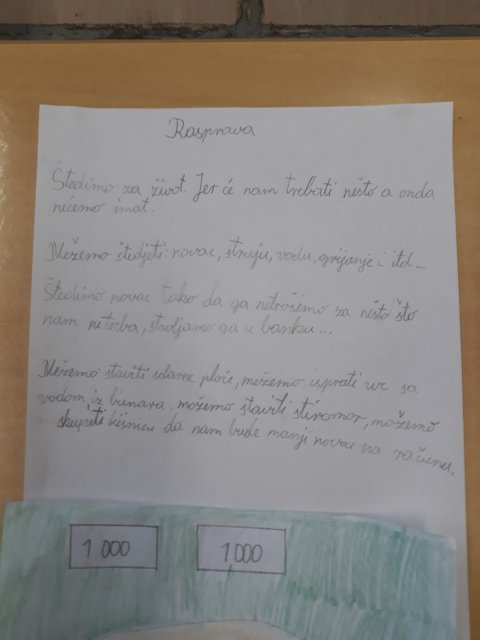 Rasprava
Štedimo za život. Jer će nam trebati nešto a onda
nećemo imat.
Možemo štedjeti: novac, struju, vodu, grijanje i itd...
Štedimo novac tako da ga netrošimo za nešto što
nam netreba, stavljamo ga u banku...
Možemo staviti solarne ploče, možemo isprati wc sa
vodom iz bunara, možemo staviti stiromor, možemo
skupiti kišnicu da nam bude manji novac na računu.
1 000
1 000